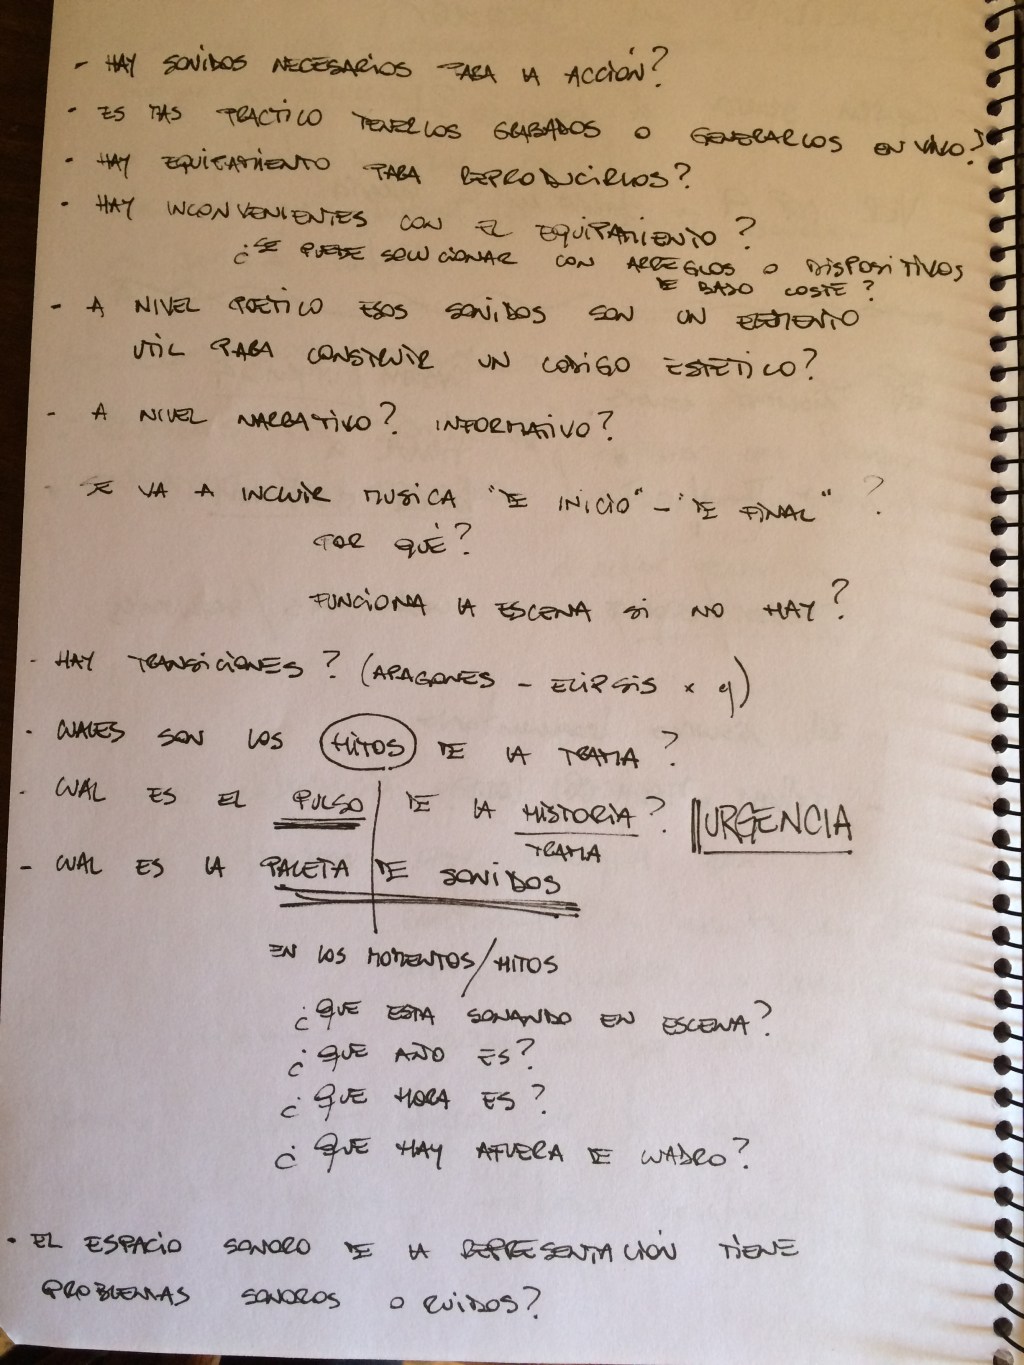 - HAY SONIDOS NECESARIOS PARA LA ACCIÓN?
- ES MAS PRACTICO TENERLOS GRABADOS O GENERARLOS EN VIVO?
- HAY EQUIPAMIENTO PARA REPRODUCIRLOS?
- HAY INCONVENIENTES CON EL EQUIPAMIENTO?
¿SE PUEDE SOLUCIONAR CON ARREGLOS O DISPOSITIVOS
DE BAJO COSTE?
- A NIVEL POÉTICO ESOS SONIDOS SON UN ELEMENTO
UTIL PARA CONSTRUIR UN CODIGO ESTETICO?
- A NIVEL NARRATIVO? INFORMATIVO?
- SE VA A INCLUIR MUSICA "DE INICIO" - "DE FINAL"?
POR QUÉ?
FUNCIONA LA ESCENA SI NO HAY?
- HAY TRANSICIONES? (APAGONES - ELIPSIS x ej)
- CUALES SON LOS HITOS DE LA TRAMA?
- CUAL ES EL PULSO DE LA HISTORIA? URGENCIA
TRAMA
- CUAL ES LA PALETA DE SONIDOS
EN LOS MOMENTOS/HITOS
¿QUE ESTA SONANDO EN ESCENA?
¿QUE AÑO ES?
¿QUE HORA ES?
¿QUE HAY AFUERA DE CUADRO?
- EL ESPACIO SONORO DE LA REPRESENTACIÓN TIENE
PROBLEMAS SONOROS O RUIDOS?